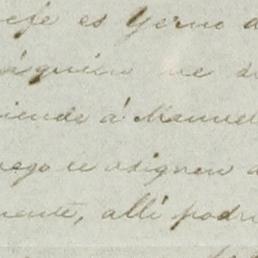 efe es yerno a
quien se d
iende á Manuel
ego se asignen a
mente, allí podr